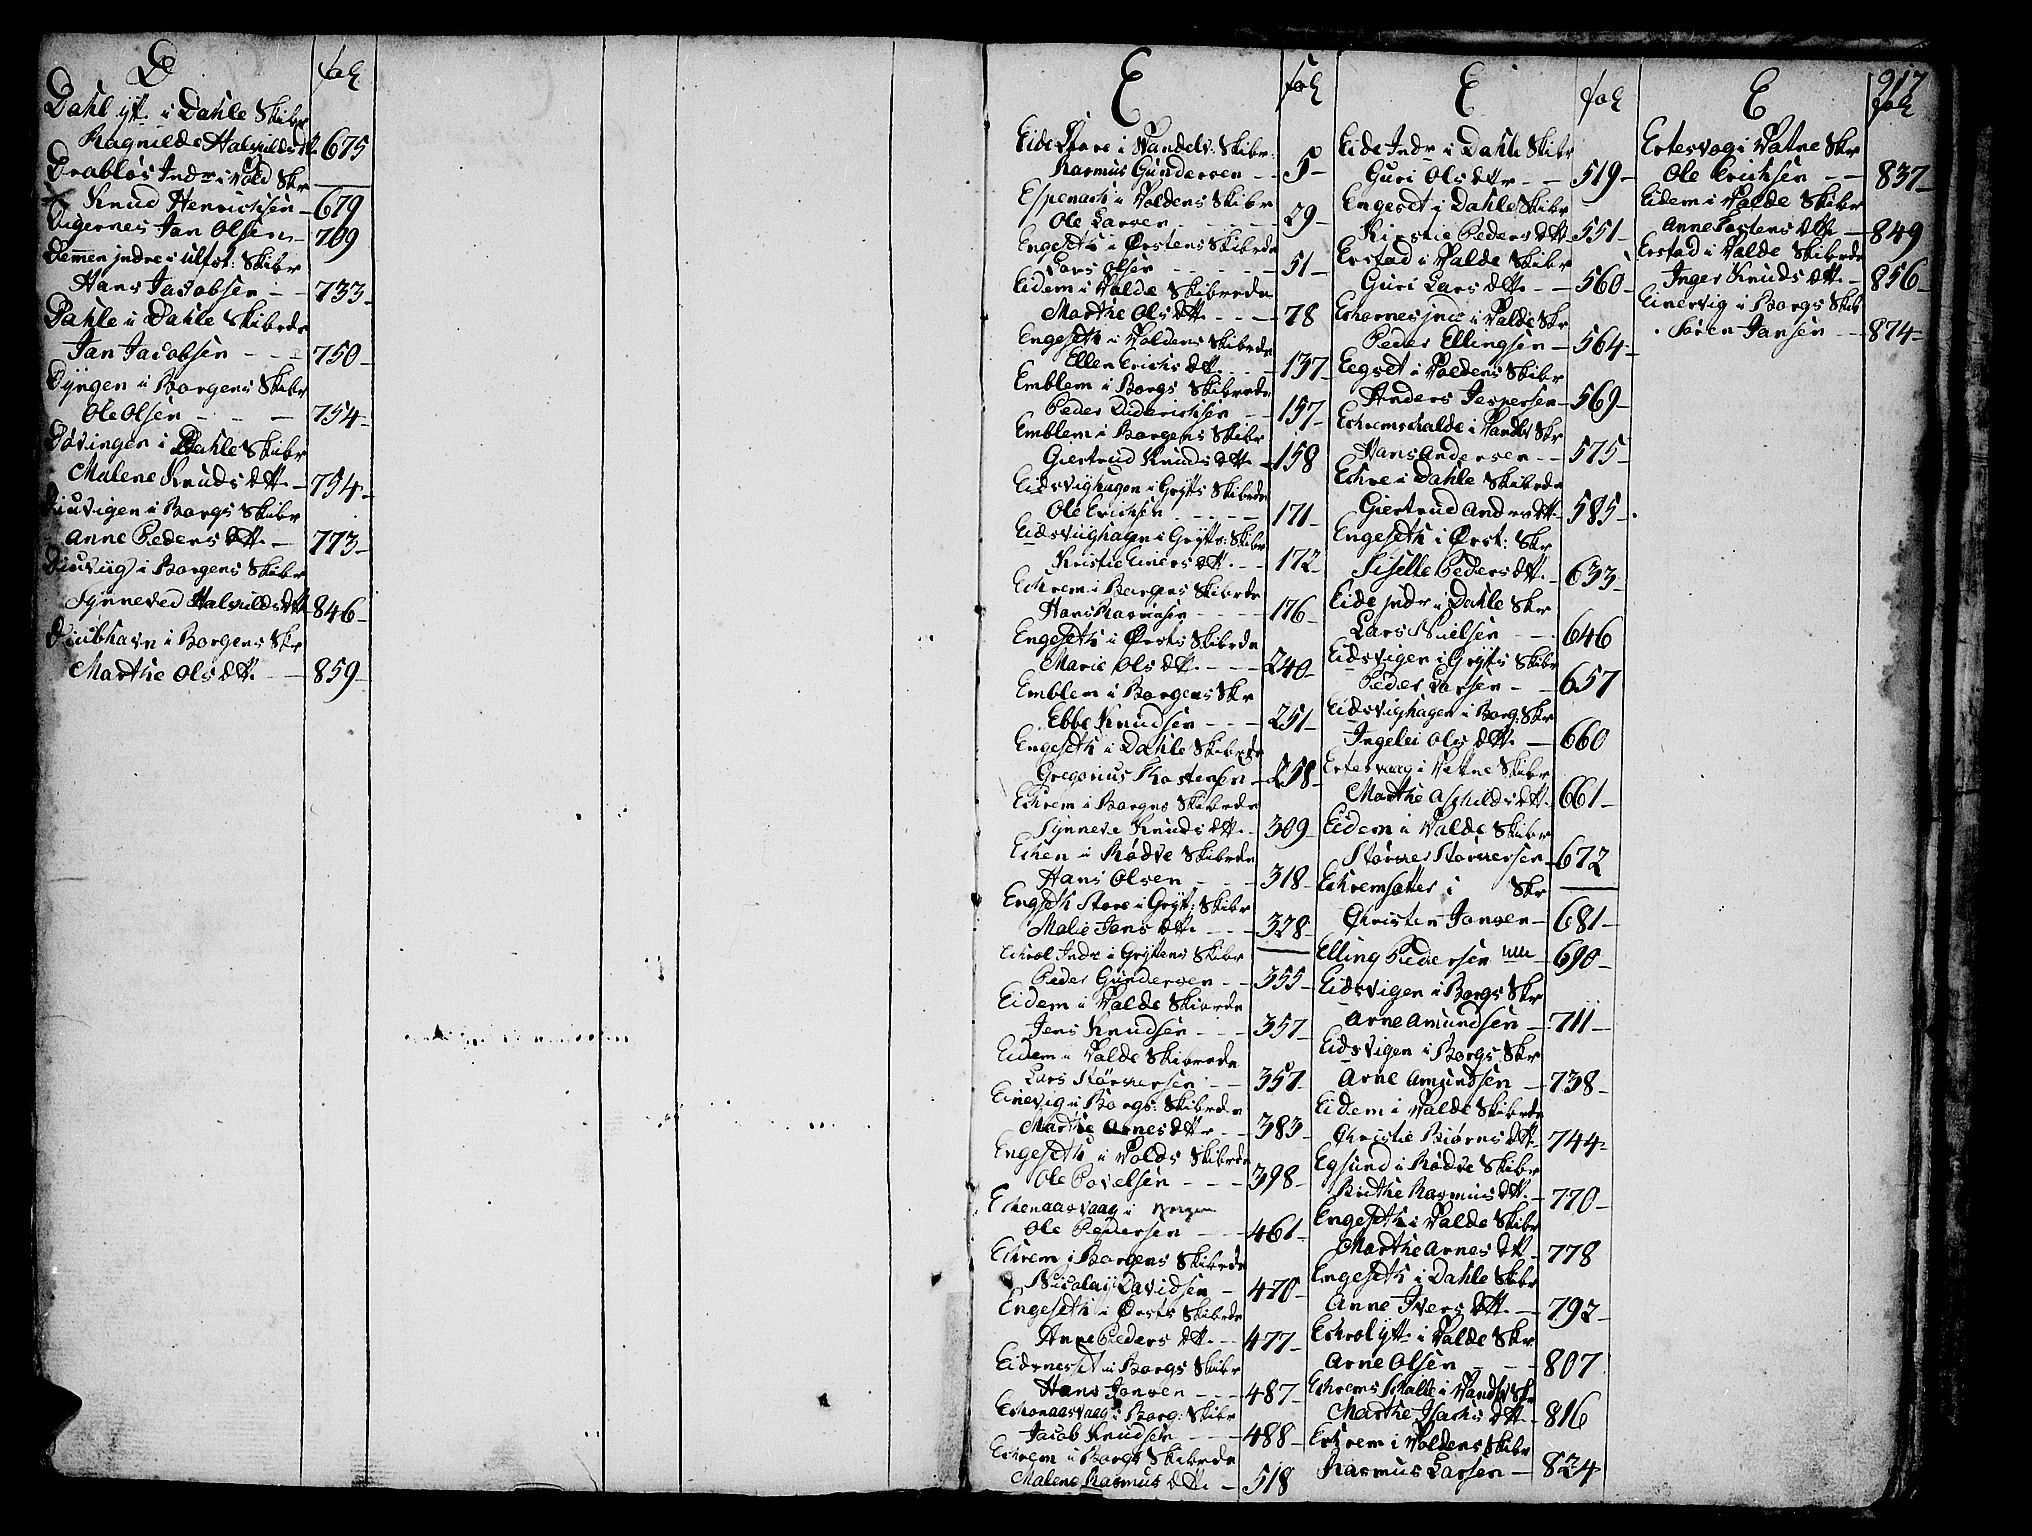 D
fol
Dahl ytt i Dahle Skibr
Ragnilde Halvulds dtr 675
Drabløs Indr i Vold Skr
Knud Henrichsen 679
Digernes Jan Olsen 709
Demen jndre i ulfst: Skibr
Hans Jacobsen 733
Dahle i Dahle Skibrde
Jan Jacobsen 750
Dyngen i Borgens Skibr
Ole Olsen 754
Døvingen i Dahle Skibr
Malene Knuds dtt. 754
Diuvigen i Borgs Skibr
Anne Peders dtt. 773
Diuviig i Borgens Skibr
Synneved Halvulds dtt 846
Diubhavn i Borgens Skr
Marthe Ols dtt. 859
E
fol
Eide Store i Vandelv: Skibr:
Rasmus Gundersen 5
Espenach i Voldens Skibr
Ole Larsen 29
Engeseth i Ørstens Skibrde
Lars Olsen 51
Eidem i Valde Skibrede
Marthe Ols dtt. 78
Engeseth i Voldens Skibrde
Ellen Erichs dtt. 137
Emblem i Borgs Skibrede
Peder Diderichsen 157
Emblem i Borgens Skibr
Giertrud Knuds dtt. 158
Eidsvighagen i Grytts Skibrde
Ole Erichsen 171
Eidsviighagen i Grytt: Skibr
Kristie Einers dtt. 172
Echrem i Borgens Skibrde
Hans Rasmusen 176
Engeseth i Ørsts Skibrde
Marie Ols dtt. 240
Emblem i Borgens Skr
Ebbe Knudsen 251
Engeseth i Dahle Skibrde
Gregorius Thostensen 258
Echrem i Borgns Skibrde
Synneve Knuds dtt. 309
Echen i Rødve Skibrde
Hans Olsen 318
Engseth Store i Grytt: Skibr
Malie Jans dtt. 328
Echrol Indr i Gryttens Skibr
Peder Gundersen 355
Eidem i Valde Skibrde
Jens Knudsen 357
Eidem i Valde Skibrede
Lars Størchersen 357
Einevig i Borgs: Skibrde
Marthe Arnes dttr 383
Engeseth i Volds Skibrde
Ole Povelsen 398
Echenaasvaag i Borgen
Ole Pedersen 461
Echrem i Borgens Skibrde
Nicolay Davidsen 470
Engeseth i Ørsts Skibrde
Anne Peders dtt. 477
Eidsneset i Borgs Skibr
Hans Jansen 487
Echonaasvaag i Borg: Skibr
Jacob Knudsen 488
Echrem i Borgs Skibrede
Malene Rasmus dtt. 518
E
fol
Eide Indr i Dahle Skibr
Guri Ols dttr 519
Engeset i Dahle Skibr
Kirstie Peders dtt 551
Erstad i Valde Skibr
Guri Lars dtt. 560
Echornes jndr i Valde Skr
Peder Ellingsen 564
Eegset i Voldens Skibr
Anders Jespersen 569
Echremschalde i Vandlv Skr
Hans Andersen 575
Echre i Dahle Skibrede
Giertrud Anders dtt. 585
Engeseth i Ørst: Skr
Siselle Peders dtt. 633
Eide jndr i Dahle Skr
Lars Nielsen 646
Eidsvigen i Grytts Skibr
Peder Larsen 657
Eidsvighagen i Borg: Skr
Ingelei Ols dtt. 660
Ertesvaag i Vatne Skibr
Marthe Aschilds dtt. 661
Eidem i Valde Skibr
Størcher Størchersen 672
Echremsætter i Skr
Christen Jansen 681
Elling Pedersen 690
Eidsvigen i Borgs Skr
Arne Amundsen 711
Eidsvigen i Borgs Skr
Arne Amundsen 738
Eidem i Valde Skibrde
Christie Biørns dtt. 744
Egsund i Rødve Skibr
Birthe Rasmus dtt. 770
Engeseth i Valde Skibr
Marthe Arnes dtt 778
Engeseth i Dahle Skibr
Anne Ivers dtt. 792
Echrol ytt i Valde Skr
Arne Olsen 807
Echrems Schalde i Vandlv Skr
Marthe Isachs dtt. 816
Echrem i Voldens Skibr
Rasmus Larsen 824
917
E
fol
Ertesvog i Vatne Skr
Ole Erichsen 837
Eidem i Valde Skibr
Anne Tostens dtr 849
Erstad i Valde Skibrde
Inger Knuds dtt. 856
Einervig i Borgs Skib
Søren Jansen 874